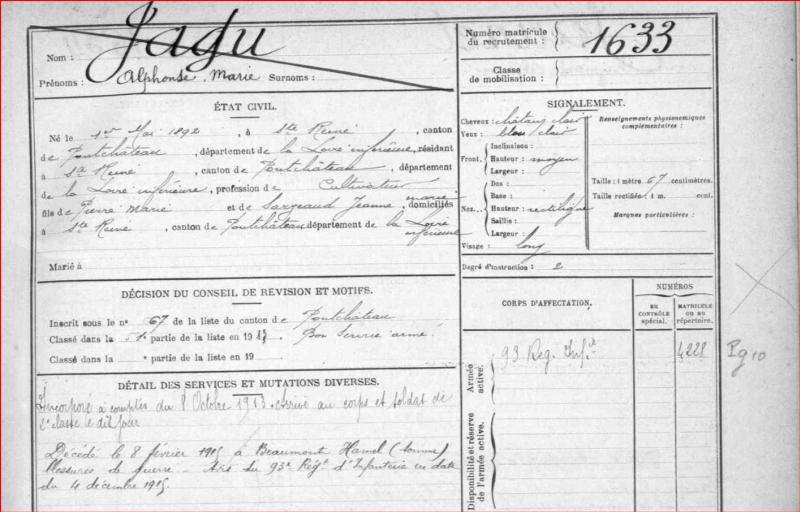 Nom : Jagu
Prénoms : Alphonse Marie Surnoms :
Numéro matricule du recrutement : 1633
Classe de mobilisation :
ÉTAT CIVIL.
Né le 1er Mai 1892, à Ste Reine, canton
de Pontchâteau, département de la Loire inférieure, résidant
à Ste Reine, canton de Pontchâteau, département
de la Loire inférieure, profession de Cultivateur
fils de Pierre Marie et de Sargeaud Jeanne marie, domiciliés
à Ste Reine, canton de Pontchâteau département de la Loire inférieure
Marié à
DÉCISION DU CONSEIL DE REVISION ET MOTIFS.
Inscrit sous le n° 67 de la liste du canton de Pontchâteau
Classé dans la partie de la liste en 19 Bon Service armé.
Classé dans la partie de la liste en 19
DÉTAIL DES SERVICES ET MUTATIONS DIVERSES.
Incorporé à compter du 8 Octobre 1913, arrivé au corps et soldat de
2e classe le dit jour
Décédé le 8 février 1915 à Beaumont Hamel (Somme)
Blessures de guerre - Avis du 93e Régt d'Infanterie en date
du 4 décembre 1915
SIGNALEMENT.
Cheveux : châtain clair
Yeux : bleu clair
Front, Inclinaison :
Hauteur : moyen
Largeur :
Nez, Dos :
Base :
Hauteur : rectiligne
Saillie :
Largeur :
Visage : long
Renseignements physionomiques complémentaires :
Taille : 1 mètre 67 centimètres.
Taille rectifiée : 1 m. cent.
Marques particulières :
Degré d'instruction : 2
CORPS D'AFFECTATION.
NUMÉROS
DU CONTRÔLE spécial.
MATRICULE OU DU répertoire.
Armée active.
93 Reg. Inf.ie
4228
Pg 10
Disponibilité et réserve de l'armée active.